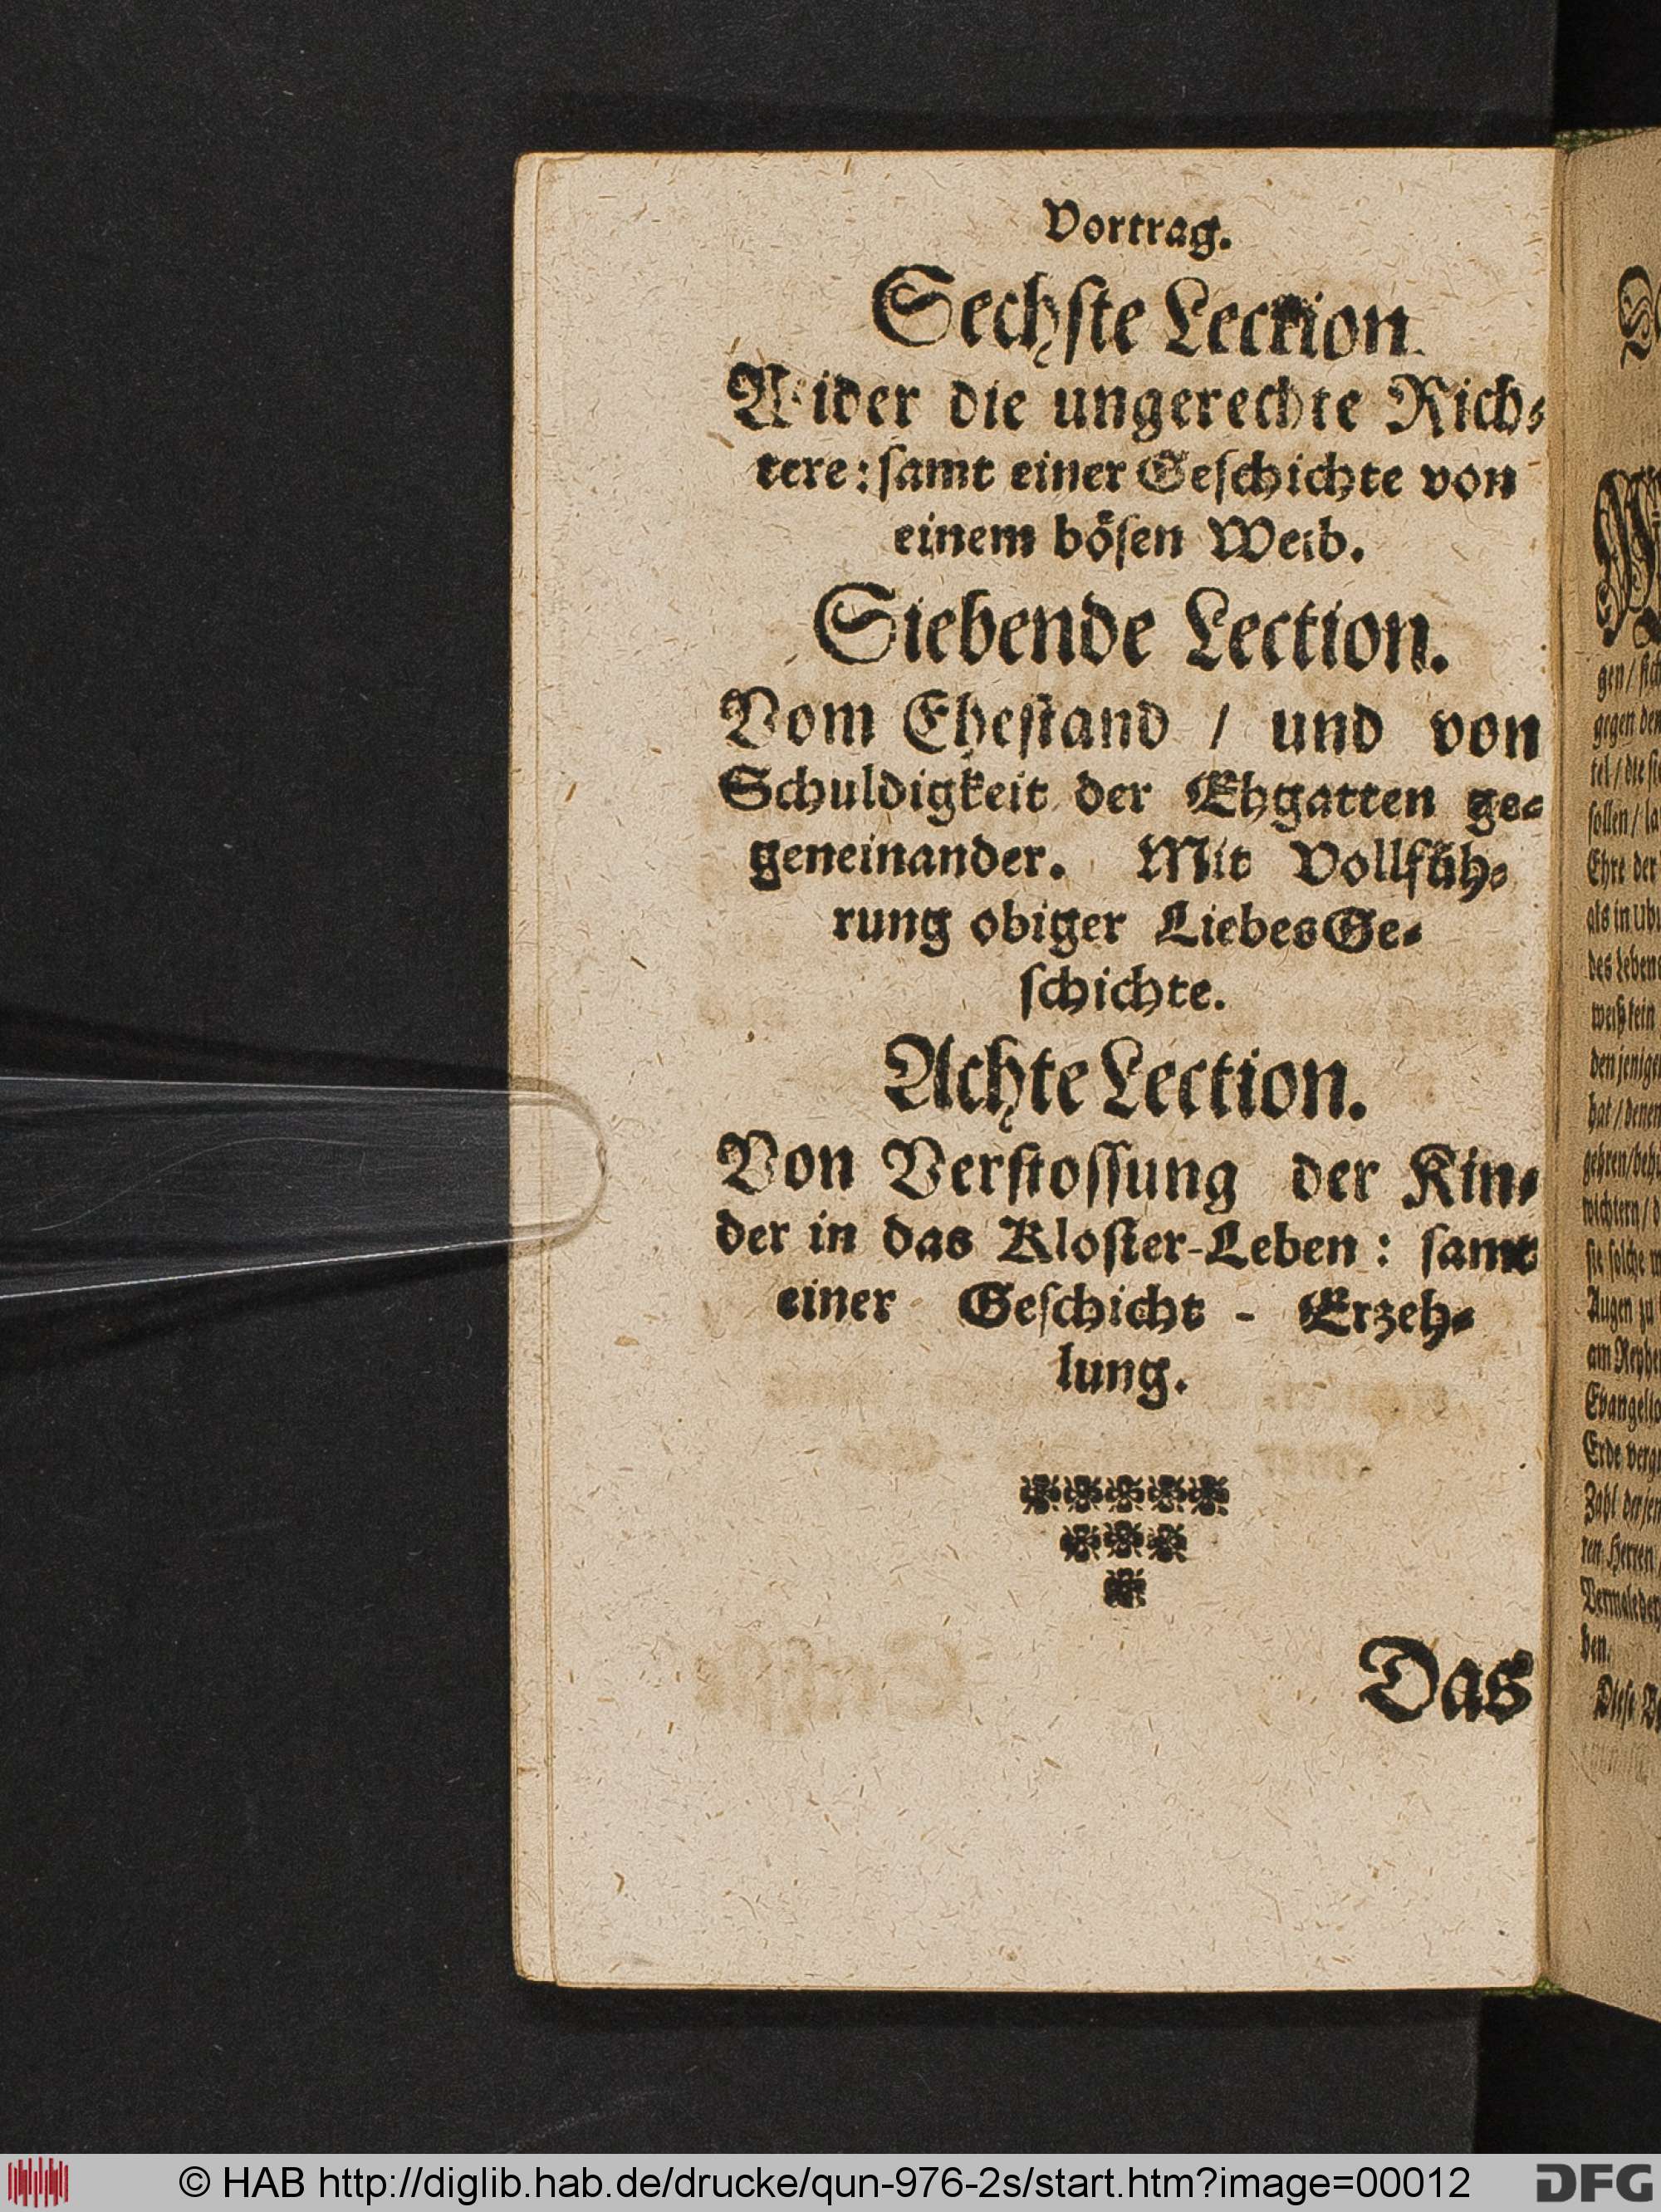 Vortrag.
Sechſte Lection.
Wider die ungerechte Rich-
tere: ſamt einer Geſchichte von
einem böſen Weib.
Siebende Lection.
Vom Eheſtand / und von
Schuldigkeit der Ehgatten ge-
geneinander. Mit Vollfüh-
rung obiger LiebesGe-
ſchichte.
Achte Lection.
Von Verſtoſſung der Kin-
der in das Kloſter-Leben: ſamt
einer Geſchicht - Erzeh-
lung.
Das
gen / ſich
gegen den
ſollen / la
Ehre der
des Lebens
weiß kein
den jenigen
hat / denen
ſie ſolche
Augen zu
Erde
ren Herren
ben.
Dieſe
© HAB http://diglib.hab.de/drucke/qun-976-2s/start.htm?image=00012
DFG